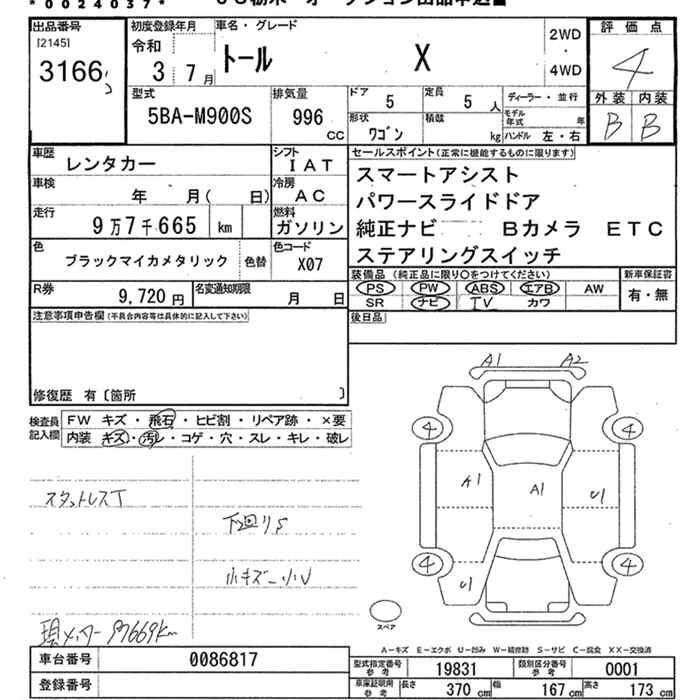 *0024037*
出品番号
[2145]
3166
初度登録年月
令和
3 7月
車名・グレード
トール X
2WD
・
4WD
評価点
4
外装 内装
B B
型式
5BA-M900S
排気量
996 CC
ドア
5
定員
5 人
形状
ワゴン
積載
kg
ディーラー・並行
モデル年式 年
ハンドル 左・右
車歴
レンタカー
車検
年 月( 日)
走行
9万7千665 km
色
ブラックマイカメタリック
色替
R券
9,720円
名変通知期限
月 日
シフト
IAT
冷房
AC
燃料
ガソリン
色コード
X07
セールスポイント(正常に機能するものに限ります)
スマートアシスト
パワースライドドア
純正ナビ Bカメラ ETC
ステアリングスイッチ
装備品 (純正品に限り○をつけてください)
PS PW ABS エアB AW
SR ナビ TV カワ
新車保証書
有・無
後日品
注意事項申告欄(不具合内容等は具体的に記入して下さい)
修復歴 有〔箇所 〕
検査員記入欄
FW キズ・飛石・ヒビ割・リペア跡・×要
内装 キズ・汚レ・コゲ・穴・スレ・キレ・破レ
スタットレスT
下回りS
小キズ−小U
現メーター 97669km
A1 A2
4 4
A1 A1 U1
4 4
U1
スペア
A−キズ E−エクボ U−凹ミ W−補修跡 S−サビ C−腐食 XX−交換済
車台番号
0086817
登録番号
型式指定番号 参考
19831
類別区分番号 参考
0001
車庫証明用 参考
長さ 370 cm
幅 167 cm
高さ 173 cm